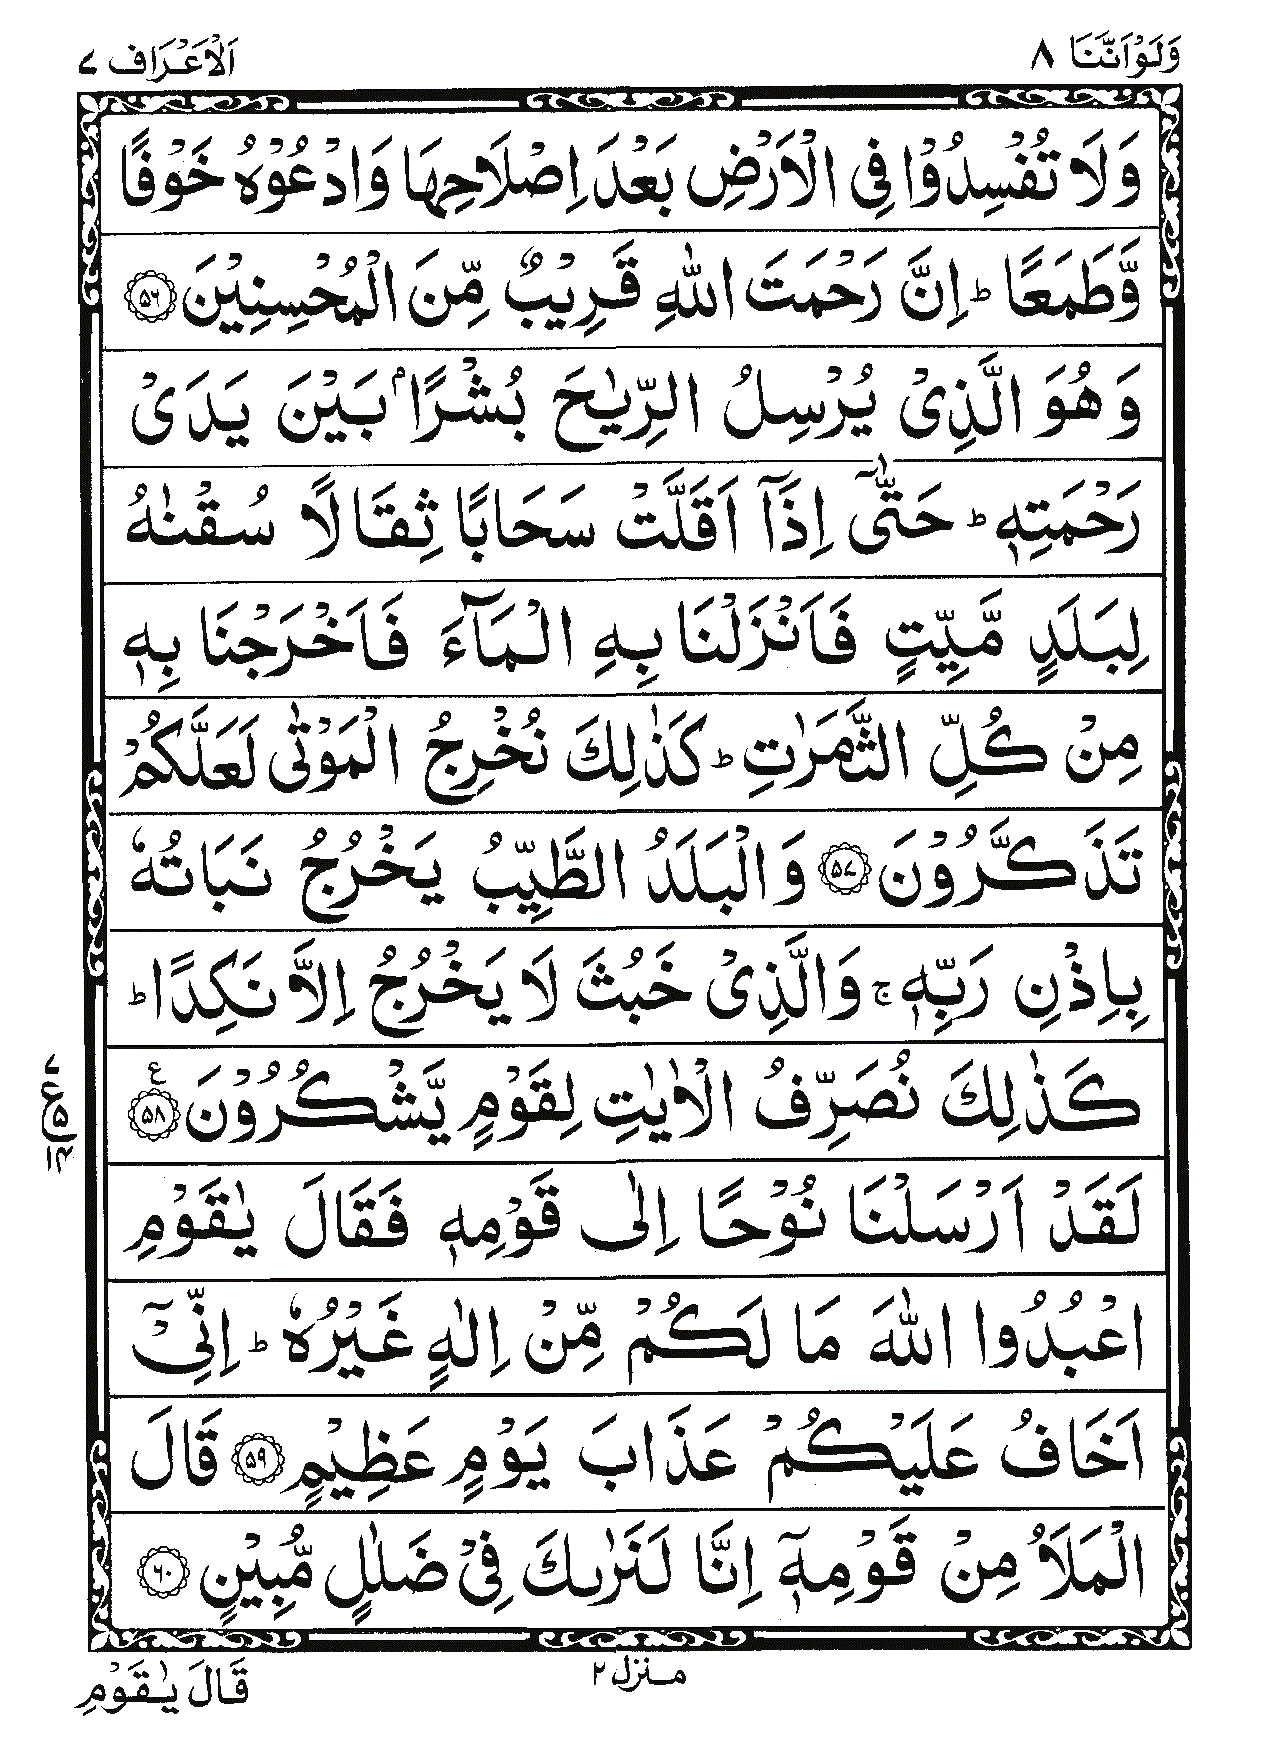 وَلَوْاَنَّنَا ٨
اَلْاَعْرَاف ٧
وَلَا تُفْسِدُوْا فِى الْاَرْضِ بَعْدَ اِصْلَاحِهَا وَادْعُوْهُ خَوْفًا
وَّطَمَعًا ؕ اِنَّ رَحْمَتَ اللّٰهِ قَرِيْبٌ مِّنَ الْمُحْسِنِيْنَ ۝۵۶
وَهُوَ الَّذِىْ يُرْسِلُ الرِّيٰحَ بُشْرًاۢ بَيْنَ يَدَىْ
رَحْمَتِهٖ ؕ حَتّٰۤى اِذَاۤ اَقَلَّتْ سَحَابًا ثِقَالًا سُقْنٰهُ
لِبَلَدٍ مَّيِّتٍ فَاَنْزَلْنَا بِهِ الْمَآءَ فَاَخْرَجْنَا بِهٖ
مِنْ كُلِّ الثَّمَرٰتِ ؕ كَذٰلِكَ نُخْرِجُ الْمَوْتٰى لَعَلَّكُمْ
تَذَكَّرُوْنَ ۝۵۷ وَالْبَلَدُ الطَّيِّبُ يَخْرُجُ نَبَاتُهٗ
بِاِذْنِ رَبِّهٖ ۚ وَالَّذِىْ خَبُثَ لَا يَخْرُجُ اِلَّا نَكِدًا ؕ
كَذٰلِكَ نُصَرِّفُ الْاٰيٰتِ لِقَوْمٍ يَّشْكُرُوْنَ ۝۵۸ ع
٧
ع ۵
١٤
لَقَدْ اَرْسَلْنَا نُوْحًا اِلٰى قَوْمِهٖ فَقَالَ يٰقَوْمِ
اعْبُدُوا اللّٰهَ مَا لَكُمْ مِّنْ اِلٰهٍ غَيْرُهٗ ؕ اِنِّىْۤ
اَخَافُ عَلَيْكُمْ عَذَابَ يَوْمٍ عَظِيْمٍ ۝۵۹ قَالَ
الْمَلَاُ مِنْ قَوْمِهٖۤ اِنَّا لَنَرٰىكَ فِىْ ضَلٰلٍ مُّبِيْنٍ ۝۶۰
منزل ٢
قَالَ يٰقَوْمِ